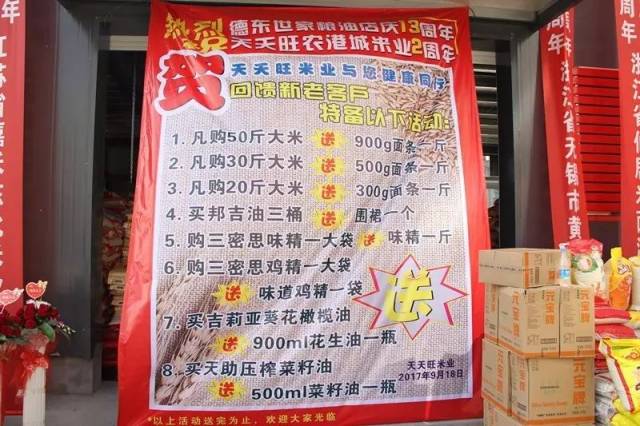 热烈
祝
贺
德东世家粮油店庆13周年
天天旺农港城米业2周年
天天旺米业与您健康同行
回馈新老客户
特备以下活动:
1. 凡购50斤大米 送 900g面条一斤
2. 凡购30斤大米 送 500g面条一斤
3. 凡购20斤大米 送 300g面条一斤
4. 买邦吉油三桶 送 围裙一个
5. 购三密思味精一大袋 送 味精一斤
6. 购三密思鸡精一大袋
送 味道鸡精一袋
7. 买吉莉亚葵花橄榄油
送 900ml花生油一瓶
8. 买天助压榨菜籽油
送 500ml菜籽油一瓶
送
天天旺米业
2017年9月18日
*以上活动送完为止, 欢迎大家光临
周年
江苏省嘉
周年 浙江省
周年 浙江省无锡市黄
元宝牌
元宝牌
元宝牌